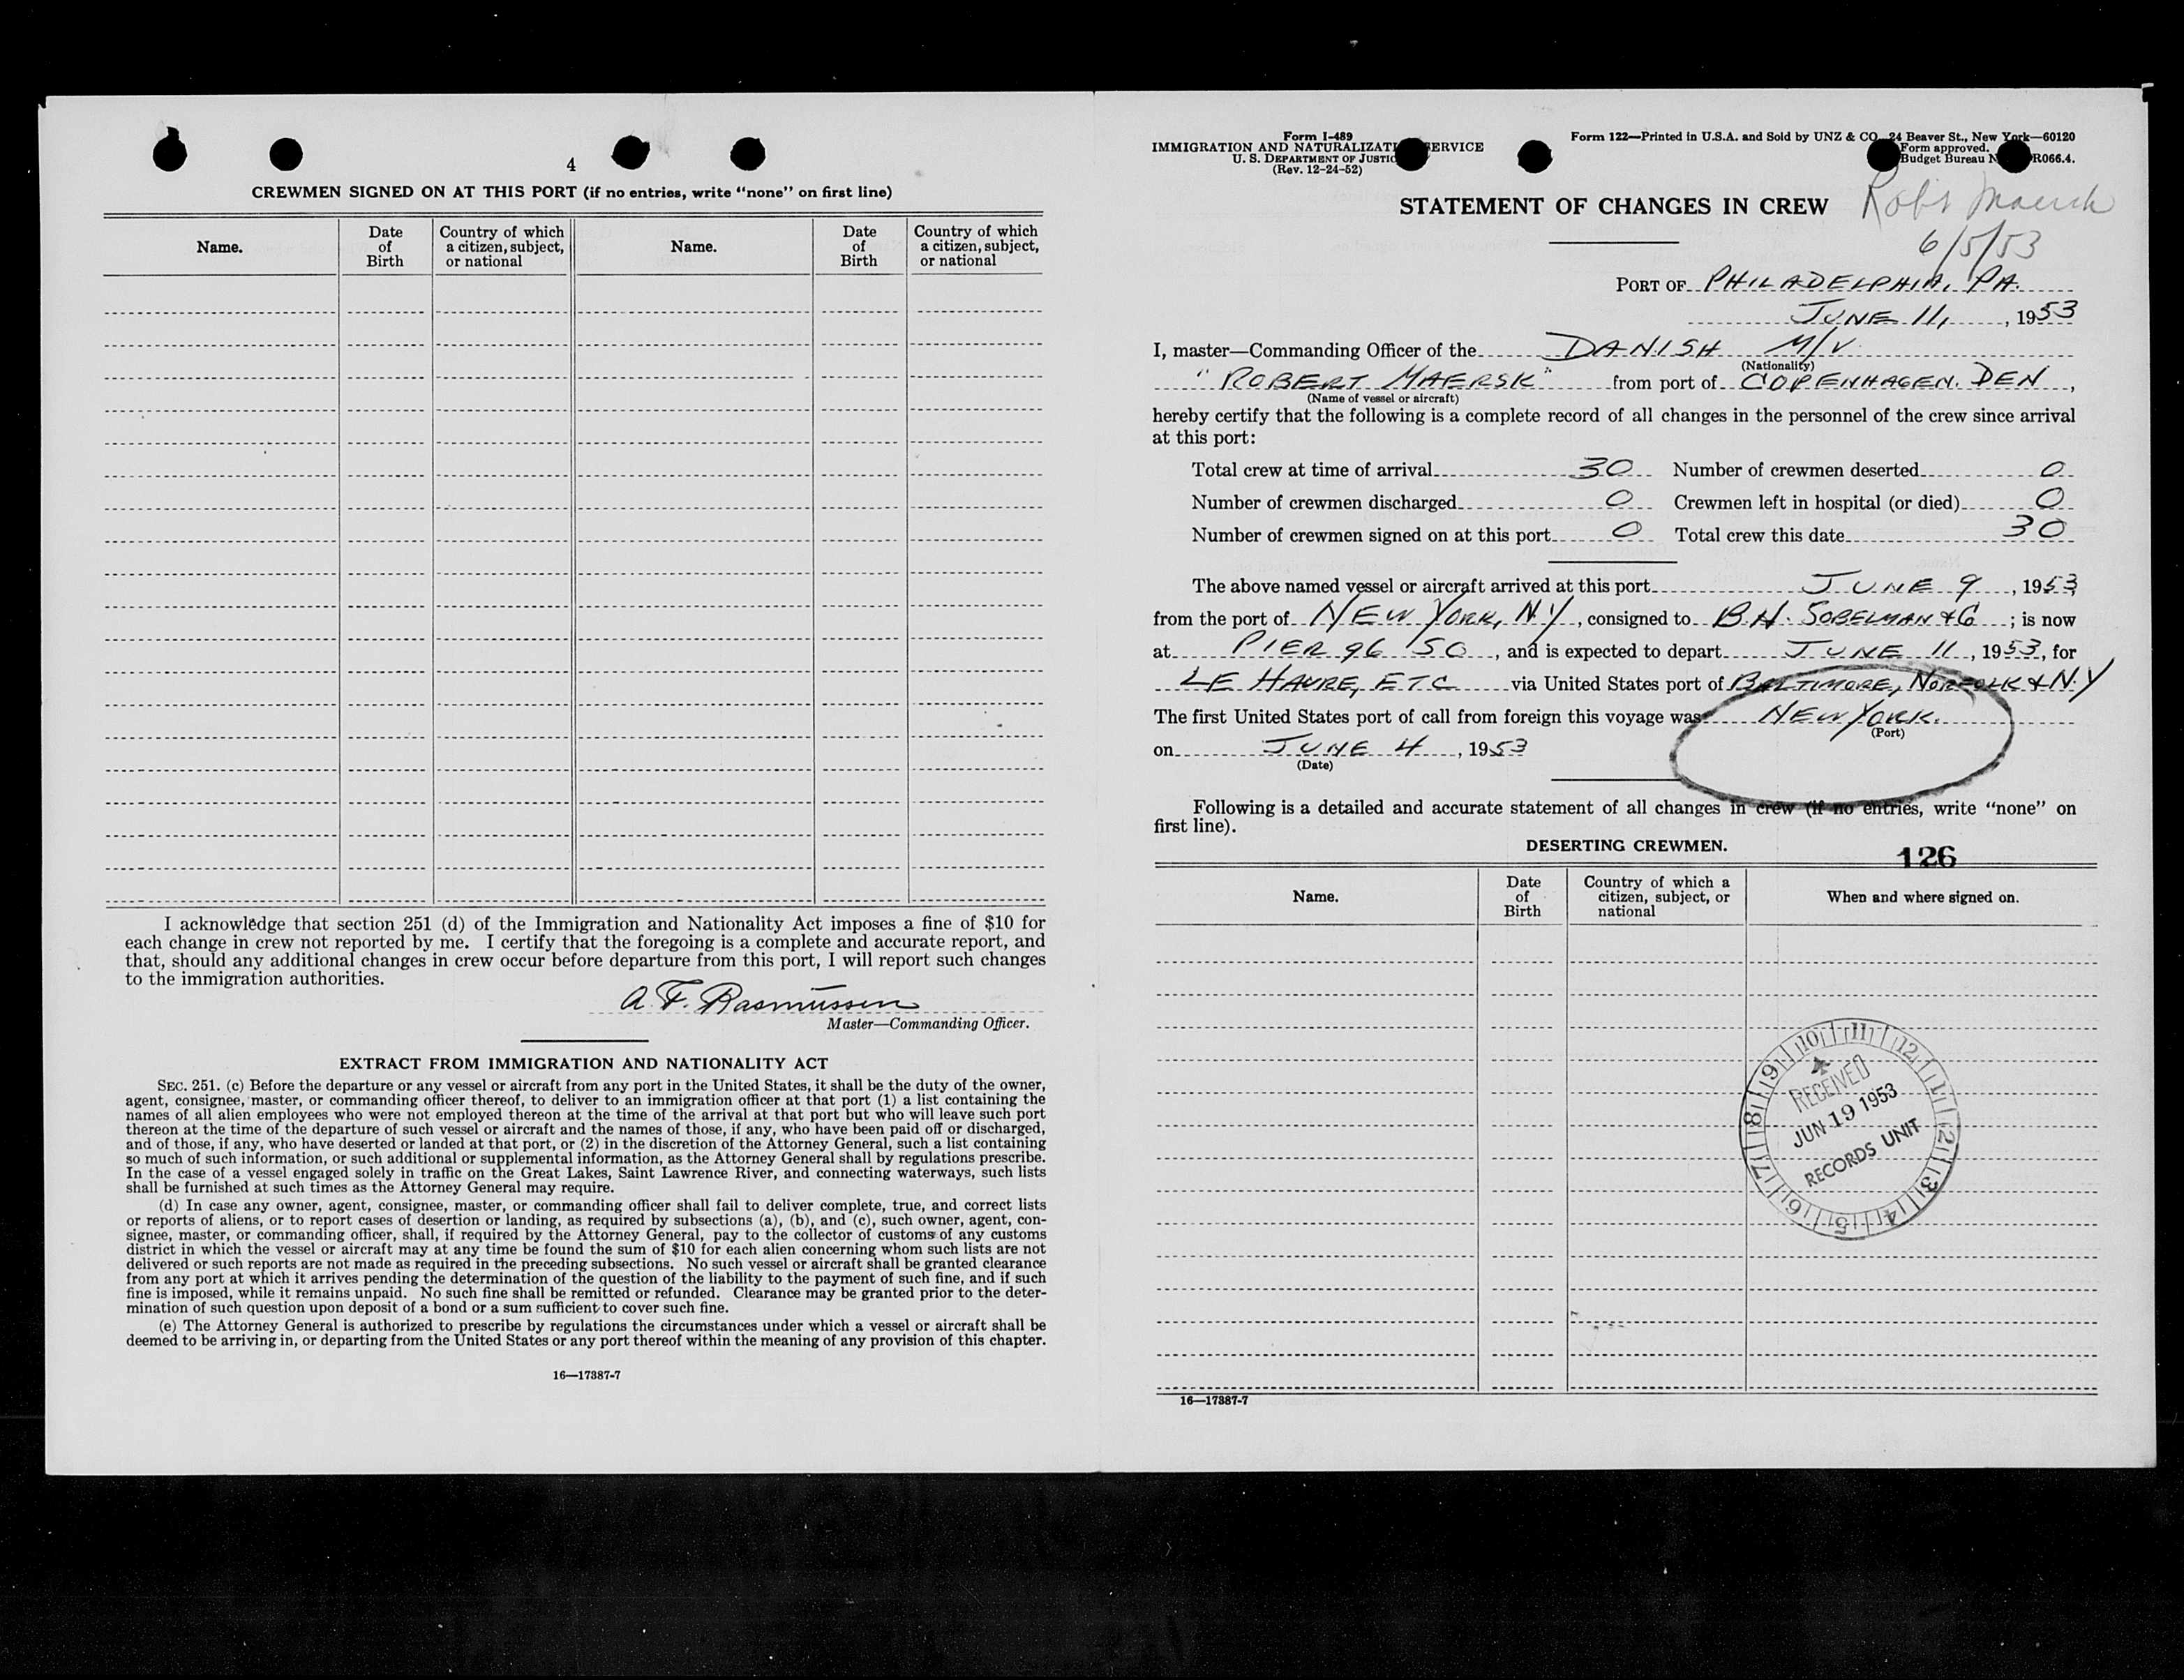 4
CREWMEN SIGNED ON AT THIS PORT (if no entries, write “none” on first line)
Name.
Date
of
Birth
Country of which
a citizen, subject,
or national
Name.
Date
of
Birth
Country of which
a citizen, subject,
or national
I acknowledge that section 251 (d) of the Immigration and Nationality Act imposes a fine of $10 for
each change in crew not reported by me. I certify that the foregoing is a complete and accurate report, and
that, should any additional changes in crew occur before departure from this port, I will report such changes
to the immigration authorities.
A. F. Rasmussen
Master—Commanding Officer.
EXTRACT FROM IMMIGRATION AND NATIONALITY ACT
SEC. 251. (c) Before the departure or any vessel or aircraft from any port in the United States, it shall be the duty of the owner,
agent, consignee, master, or commanding officer thereof, to deliver to an immigration officer at that port (1) a list containing the
names of all alien employees who were not employed thereon at the time of the arrival at that port but who will leave such port
thereon at the time of the departure of such vessel or aircraft and the names of those, if any, who have been paid off or discharged,
and of those, if any, who have deserted or landed at that port, or (2) in the discretion of the Attorney General, such a list containing
so much of such information, or such additional or supplemental information, as the Attorney General shall by regulations prescribe.
In the case of a vessel engaged solely in traffic on the Great Lakes, Saint Lawrence River, and connecting waterways, such lists
shall be furnished at such times as the Attorney General may require.
(d) In case any owner, agent, consignee, master, or commanding officer shall fail to deliver complete, true, and correct lists
or reports of aliens, or to report cases of desertion or landing, as required by subsections (a), (b), and (c), such owner, agent, con-
signee, master, or commanding officer, shall, if required by the Attorney General, pay to the collector of customs of any customs
district in which the vessel or aircraft may at any time be found the sum of $10 for each alien concerning whom such lists are not
delivered or such reports are not made as required in the preceding subsections. No such vessel or aircraft shall be granted clearance
from any port at which it arrives pending the determination of the question of the liability to the payment of such fine, and if such
fine is imposed, while it remains unpaid. No such fine shall be remitted or refunded. Clearance may be granted prior to the deter-
mination of such question upon deposit of a bond or a sum sufficient to cover such fine.
(e) The Attorney General is authorized to prescribe by regulations the circumstances under which a vessel or aircraft shall be
deemed to be arriving in, or departing from the United States or any port thereof within the meaning of any provision of this chapter.
16—17387-7
Form I-489
IMMIGRATION AND NATURALIZATI SERVICE
U. S. DEPARTMENT OF JUSTIC
(Rev. 12-24-52)
Form 122—Printed in U.S.A. and Sold by UNZ & CO. 24 Beaver St., New York—60120
Form approved.
Budget Bureau N R066.4.
STATEMENT OF CHANGES IN CREW
Robt Maersk
6/5/53
PORT OF PHILADELPHIA, PA.
JUNE 11, , 1953
I, master—Commanding Officer of the DANISH M/V
(Nationality)
"ROBERT MAERSK" from port of COPENHAGEN. DEN ,
(Name of vessel or aircraft)
hereby certify that the following is a complete record of all changes in the personnel of the crew since arrival
at this port:
Total crew at time of arrival 30 Number of crewmen deserted 0
Number of crewmen discharged 0 Crewmen left in hospital (or died) 0
Number of crewmen signed on at this port 0 Total crew this date 30
The above named vessel or aircraft arrived at this port JUNE 9 , 1953
from the port of NEW YORK, N.Y , consigned to B.H. SOBELMAN & Co ; is now
at PIER 96 SO , and is expected to depart JUNE 11 , 1953, for
LE HAVRE, ETC via United States port of BALTIMORE, NORFOLK & N.Y
The first United States port of call from foreign this voyage was NEW YORK.
(Port)
on JUNE 4 , 1953
(Date)
Following is a detailed and accurate statement of all changes in crew (if no entries, write “none” on
first line).
DESERTING CREWMEN.
126
Name.
Date
of
Birth
Country of which a
citizen, subject, or
national
When and where signed on.
10 11 12 1 2 3 4 5 6 7 8 9
RECEIVED
JUN 19 1953
RECORDS UNIT
16—17387-7